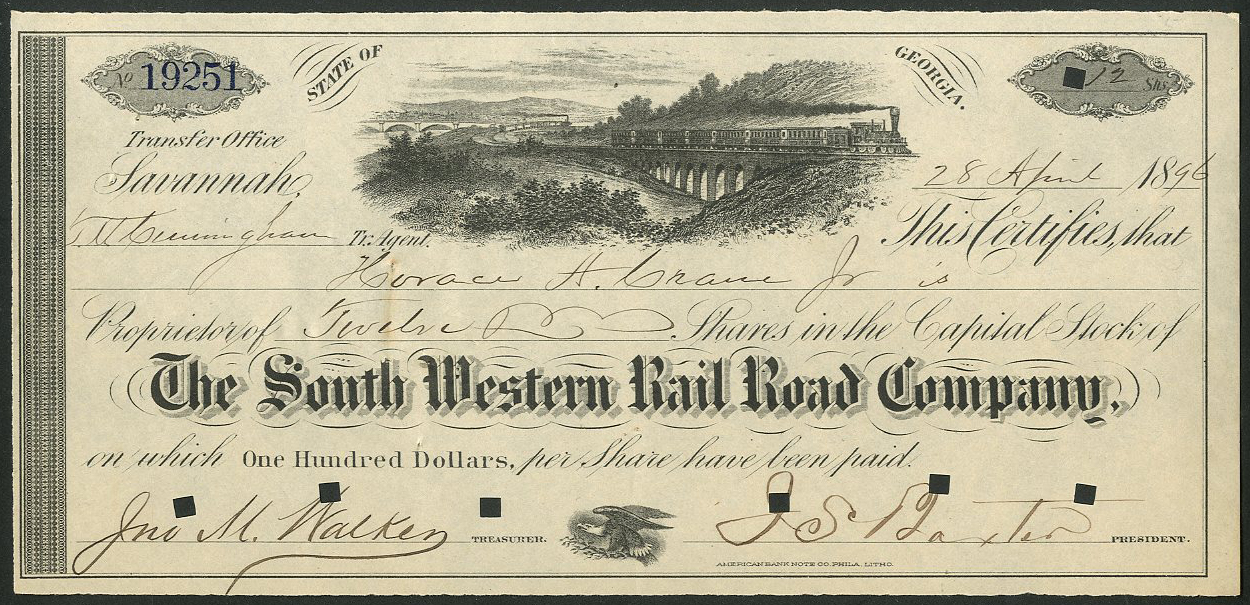 No 19251
STATE OF GEORGIA.
12 Shs.
Transfer Office
Savannah,
28 April 1896
T M Cunningham Tr. Agent.
This Certifies, that
Horace A. Crane Jr is
Proprietor of Twelve Shares in the Capital Stock of
The South Western Rail Road Company,
on which One Hundred Dollars, per Share have been paid.
Jno M. Walker TREASURER.
J S Baxter PRESIDENT.
AMERICAN BANK NOTE CO. PHILA. LITHO.